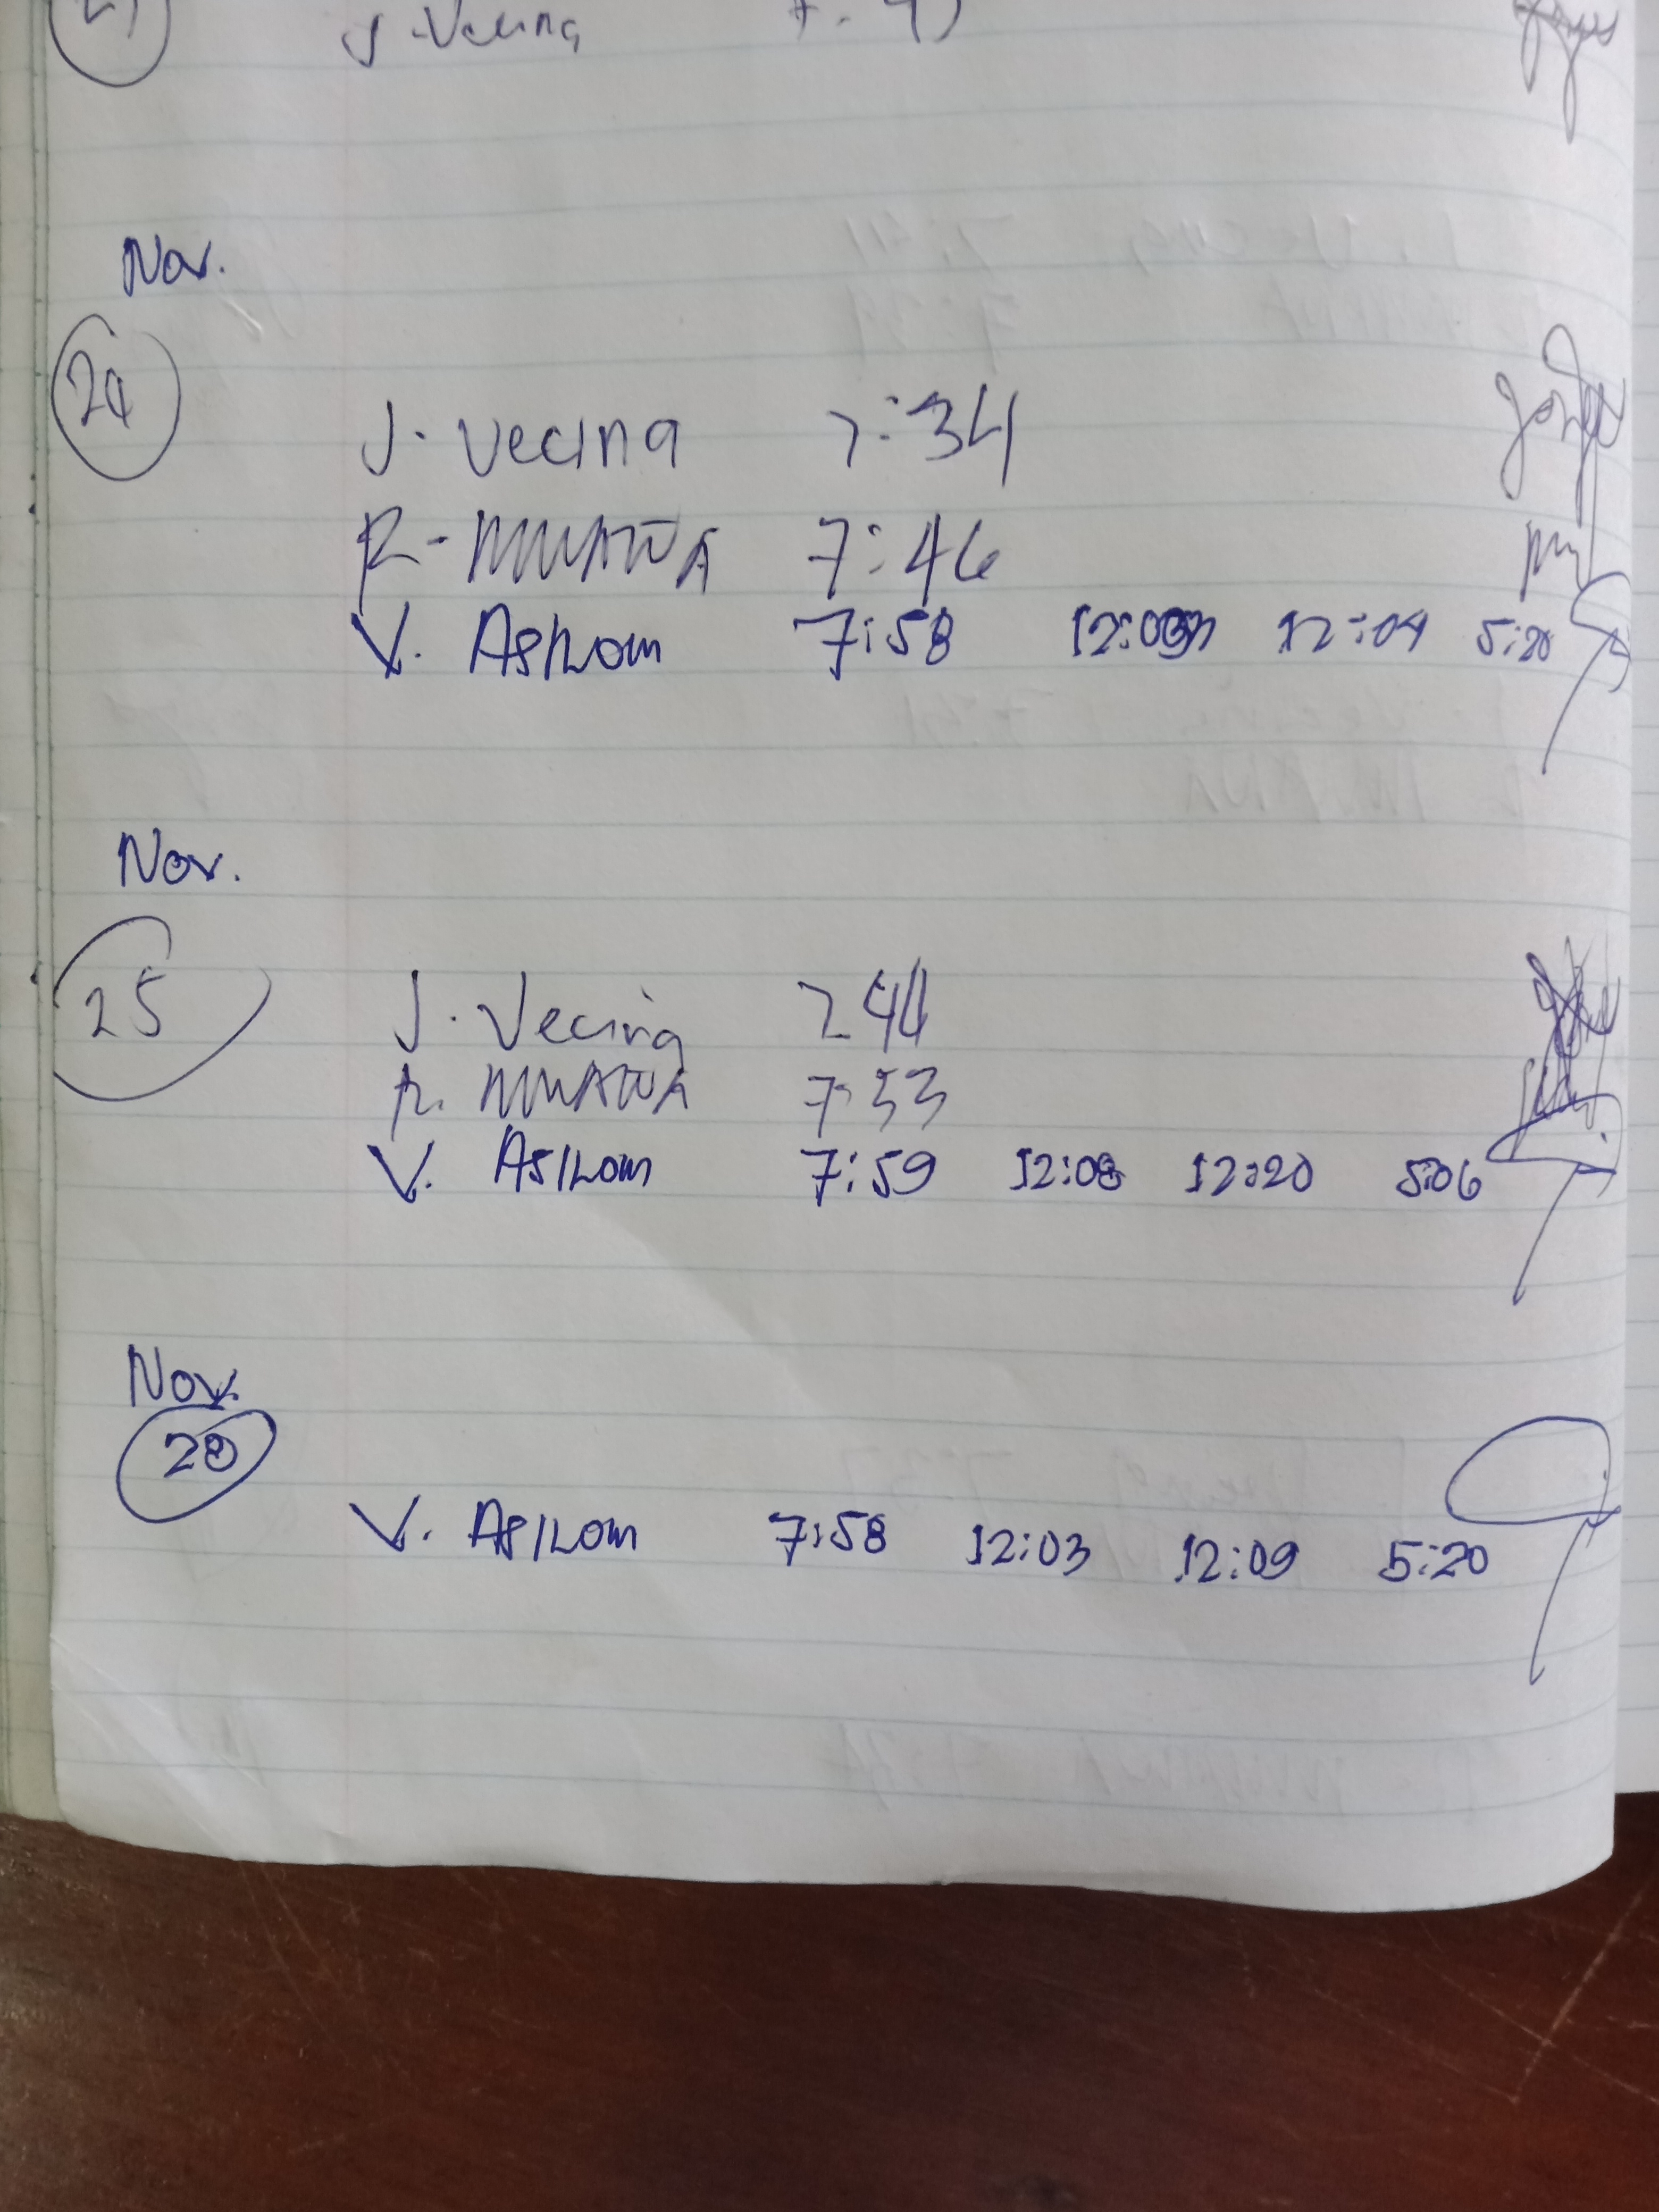 J. Vecina 7:4
Nov.
24
J. Vecina 7:34
R. 7:46
V. Asilom 7:58 12:03 12:04 5:20
Nov.
25
J. Vecina 7 44
R. 7:53
V. Asilom 7:59 12:08 12:20 5:06
Nov.
28
V. Asilom 7:58 12:03 12:09 5:20